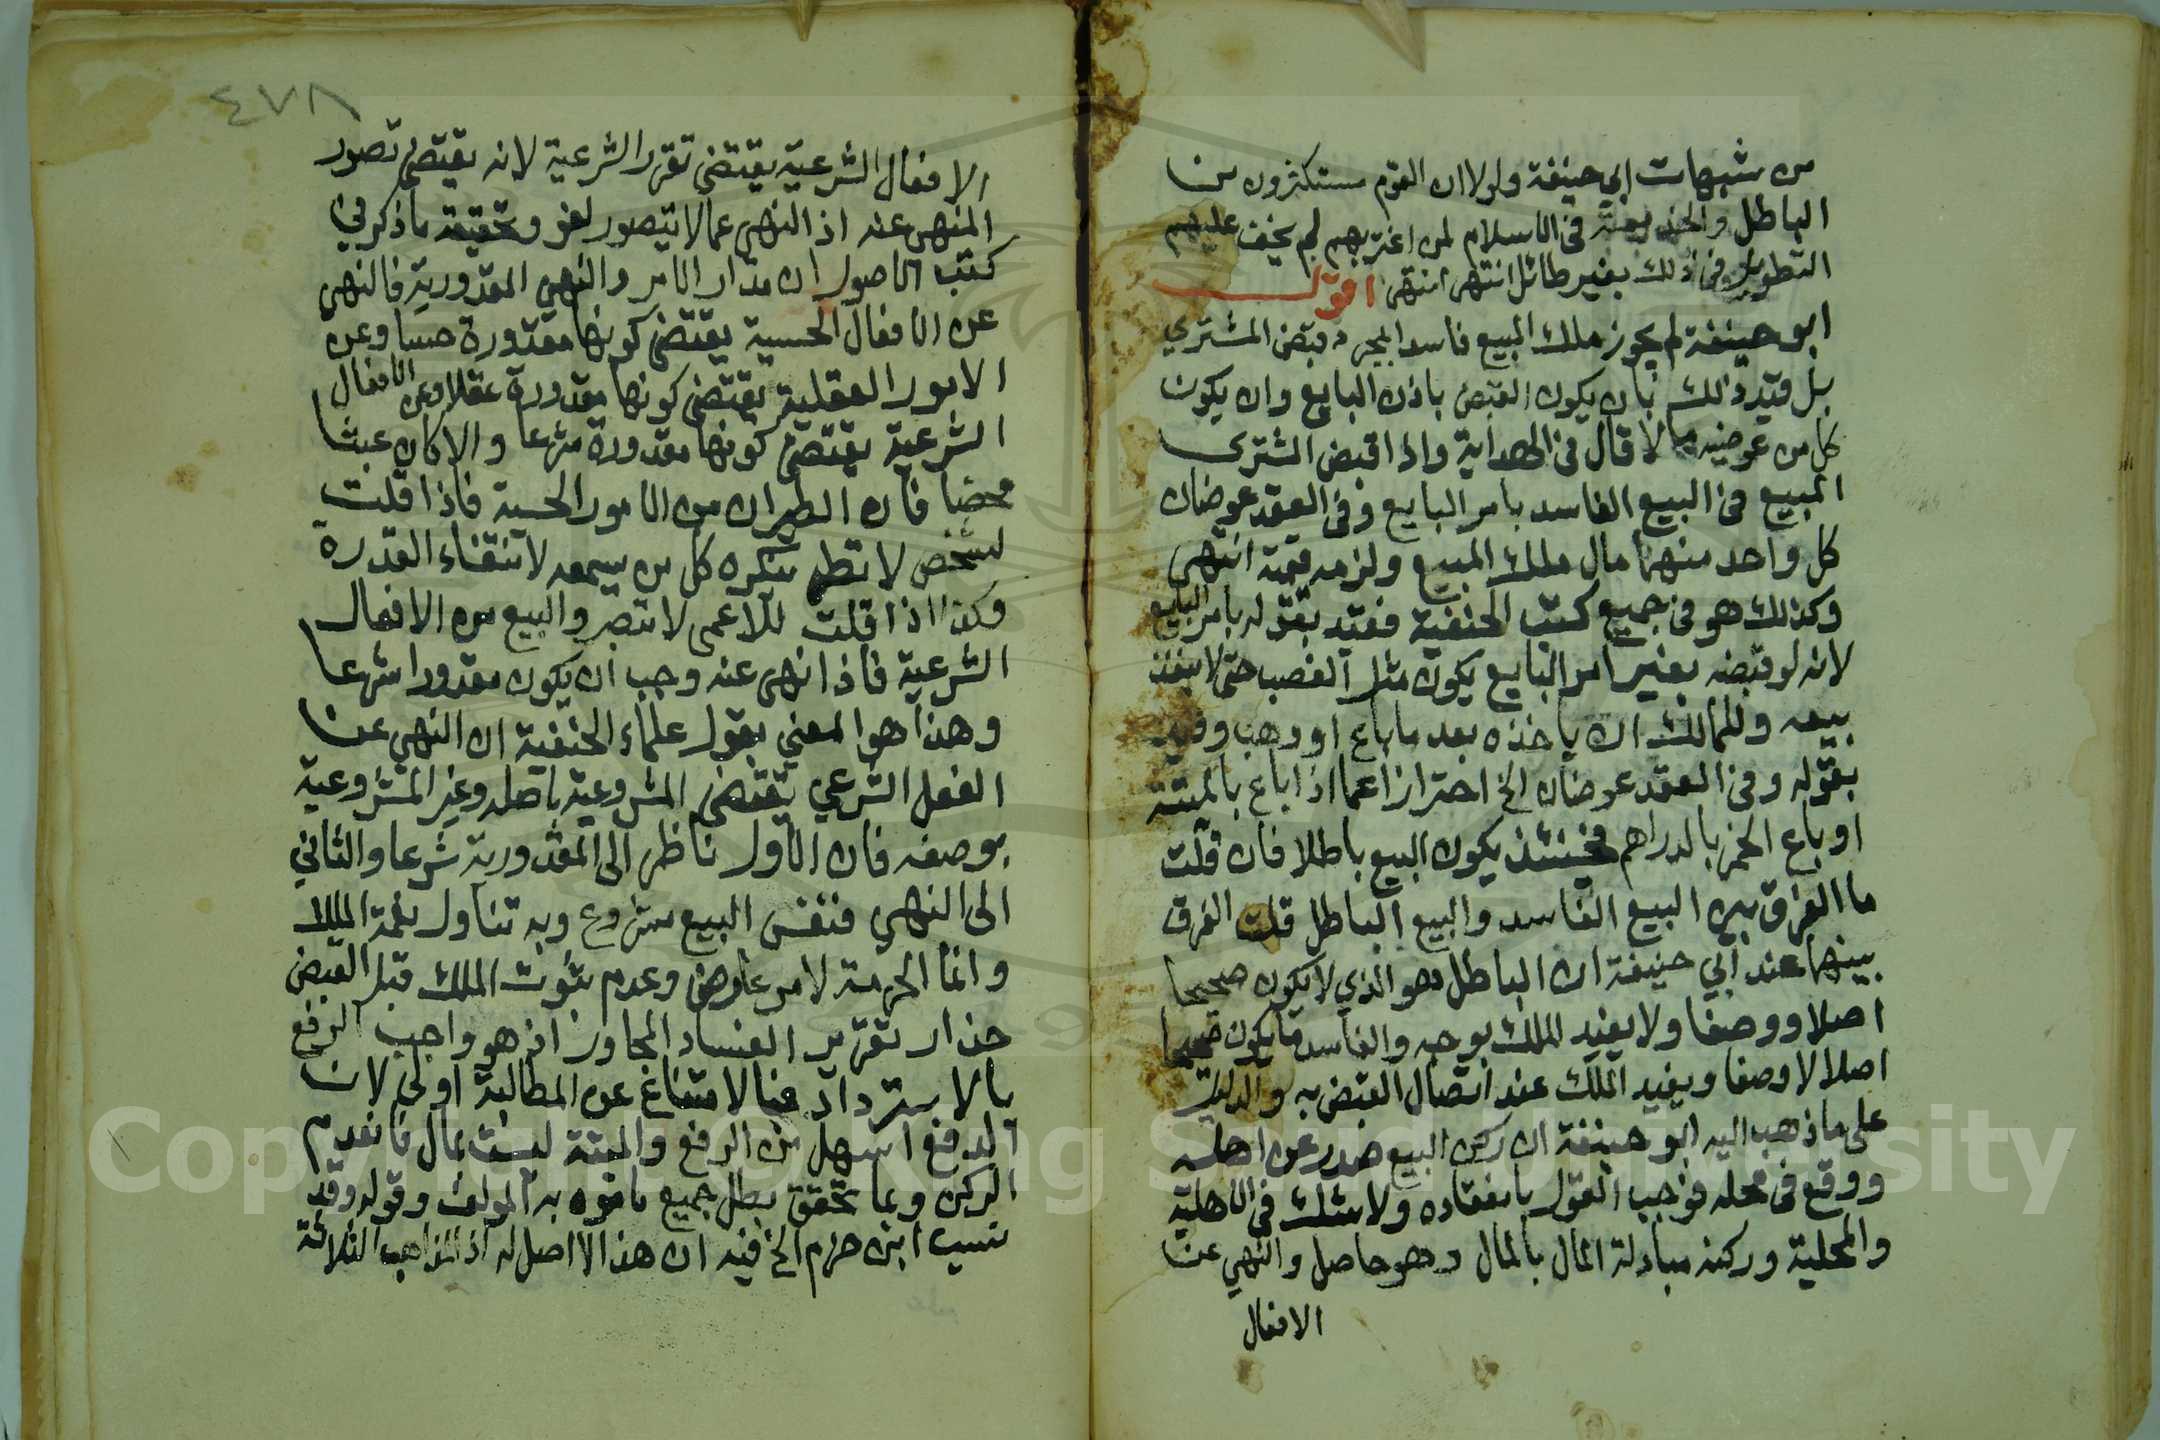 من شبهات ابي حنيفة ولولا ان القوم يستكثرون من
الباطل والخديعة في الاسلام لمن اغتر بهم لم يخف عليهم
التطويل في ذلك بغير طائل انتهى انتهى اقول
ابو حنيفة لم يجوز ملك المبيع فاسدا بمجرد قبض المشتري
بل قيد ذلك بان يكون القبض باذن البايع وان يكون
كل من عوضيه مالا قال في الهداية واذا قبض المشترى
المبيع في البيع الفاسد بامر البايع وفي العقد عوضان
كل واحد منهما مال ملك المبيع ولزمه قيمة انتهى
وكذلك هو في جميع كتب الحنفية فقيد بقوله بامر البايع
لانه لو قبضه بغير امر البايع يكون مثل الغصب حتى لا ينفذ
بيعه وللمالك ان ياخذه بعد ما باع او وهب وقيد
بقوله وفي العقد عوضان الخ احترازا عما اذا باع بالميتة
او باع الخمر بالدراهم فحينئذ يكون البيع باطلا فان قلت
ما الفرق بين البيع الفاسد والبيع الباطل قلت الفرق
بينهما عند ابي حنيفة ان الباطل هو الذي لا يكون صحيحا
اصلا ووصفا ولا يفيد الملك بوجه والفاسد ما يكون صحيحا
اصلا لا وصفا ويفيد الملك عند اتصال القبض به والدليل
على ما ذهب اليه ابو حنيفة ان ركن البيع صدر عن اهله
ووقع في محله فوجب القول بانعقاده ولا شك في الاهلية
والمحلية وركنه مبادلة المال بالمال وهو حاصل والنهي عن
الافعال
٤٧٨
الافعال الشرعية يقتضي تقرر الشرعية لانه يقتضي تصور
المنهى عنه اذ النهى عما لا يتصور لغو وتحقيقة ما ذكر في
كتب الاصول ان مدار الامر والنهي المقدورية فالنهى
عن الافعال الحسية يقتضي كونها مقدورة حسا وعن
الامور العقلية يقتضي كونها مقدورة عقلا وعن الافعال
الشرعية يقتضي كونها مقدورة شرعا والا كان عبثا
محضا فان الطيران من الامور الحسية فاذا قلت
لشخص لا تطر ينكره كل من يسمعه لانتفاء القدرة
وكذا اذا قلت للاعمى لا تبصر والبيع من الافعال
الشرعية فاذا نهى عنه وجب ان يكون مقدورا شرعا
وهذا هو المعني بقول علماء الحنفية ان النهي عن
الفعل الشرعي يقتضي المشروعية باصله وغير المشروعية
بوصفه فان الاول ناظر الى المقدورية شرعا والثاني
الى النهي فنفس البيع مشروع وبه تناول نعمة الملك
وانما الحرمة لامر عارض وعدم ثبوت الملك قبل القبض
حذار تقرير الفساد المجاور اذ هو واجب الرفع
بالاسترداد فبالامتناع عن المطالبة اولى لان
الدفع اسهل من الرفع والميتة ليست بمال فانعدم
الركن وبما تحقق بطل جميع ما فوه به المولف وقوله وقد
نسب ابن حزم الخ فيه ان هذا لا اصل له اذ المذاهب الثلاثة
Copyright © King Saud University